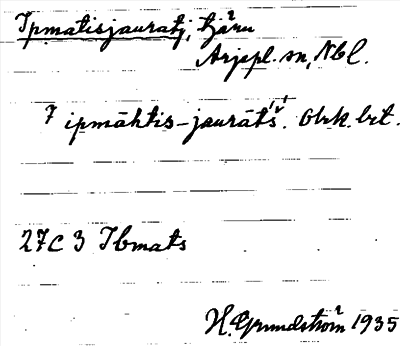 Ipmatisjauratj, tjärn
Arjepl. sn, Nbl.
7 ipmāhtis-jaurātš́. Obrk. brt.
27C 3 Ibmats
H. Grundström 1935